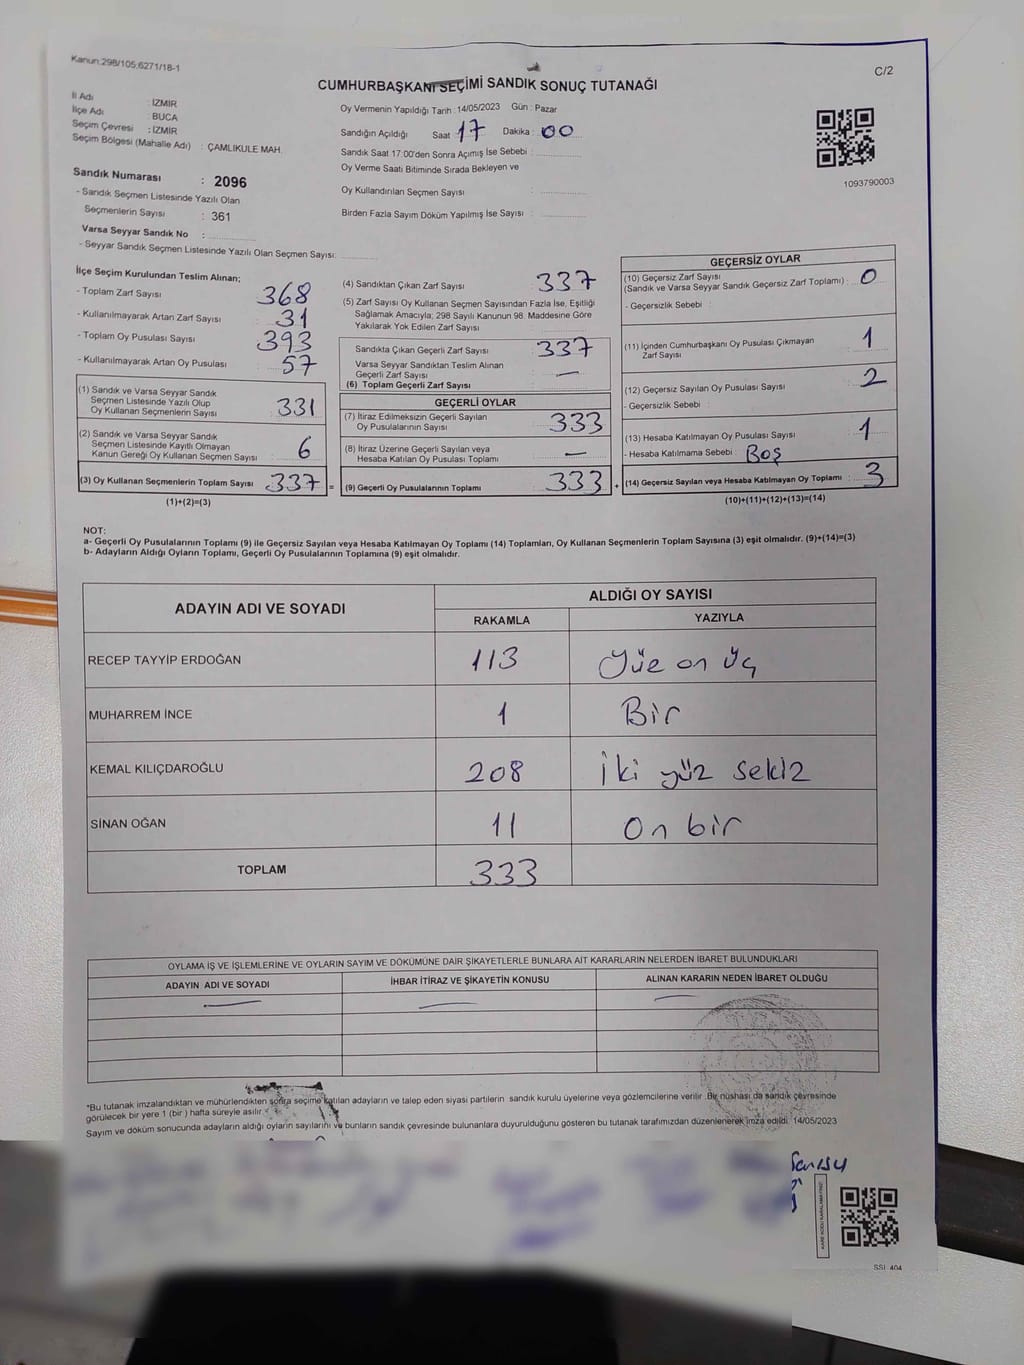 Kanun:298/105;6271/18-1
C/2
CUMHURBAŞKANI SEÇİMİ SANDIK SONUÇ TUTANAĞI
İl Adı : İZMİR
İlçe Adı : BUCA
Seçim Çevresi : İZMİR
Seçim Bölgesi (Mahalle Adı) : ÇAMLIKULE MAH.
Sandık Numarası : 2096
- Sandık Seçmen Listesinde Yazılı Olan
Seçmenlerin Sayısı : 361
Varsa Seyyar Sandık No :
- Seyyar Sandık Seçmen Listesinde Yazılı Olan Seçmen Sayısı:
Oy Vermenin Yapıldığı Tarih : 14/05/2023 Gün : Pazar
Sandığın Açıldığı Saat 17 Dakika : 00
Sandık Saat 17:00'den Sonra Açımış İse Sebebi :
Oy Verme Saati Bitiminde Sırada Bekleyen ve
Oy Kullandırılan Seçmen Sayısı :
Birden Fazla Sayım Döküm Yapılmış İse Sayısı :
1093790003
İlçe Seçim Kurulundan Teslim Alınan;
- Toplam Zarf Sayısı 368
- Kullanılmayarak Artan Zarf Sayısı : 31
- Toplam Oy Pusulası Sayısı : 393
- Kullanılmayarak Artan Oy Pusulası : 57
(1) Sandık ve Varsa Seyyar Sandık
Seçmen Listesinde Yazılı Olup
Oy Kullanan Seçmenlerin Sayısı : 331
(2) Sandık ve Varsa Seyyar Sandık
Seçmen Listesinde Kayıtlı Olmayan
Kanun Gereği Oy Kullanan Seçmen Sayısı : 6
(3) Oy Kullanan Seçmenlerin Toplam Sayısı : 337 =
(1)+(2)=(3)
(4) Sandıktan Çıkan Zarf Sayısı : 337
(5) Zarf Sayısı Oy Kullanan Seçmen Sayısından Fazla İse, Eşitliği
Sağlamak Amacıyla; 298 Sayılı Kanunun 98. Maddesine Göre
Yakılarak Yok Edilen Zarf Sayısı :
Sandıkta Çıkan Geçerli Zarf Sayısı : 337
Varsa Seyyar Sandıktan Teslim Alınan
Geçerli Zarf Sayısı : —
(6) Toplam Geçerli Zarf Sayısı :
GEÇERLİ OYLAR
(7) İtiraz Edilmeksizin Geçerli Sayılan
Oy Pusulalarının Sayısı : 333
(8) İtiraz Üzerine Geçerli Sayılan veya
Hesaba Katılan Oy Pusulası Toplamı : —
(9) Geçerli Oy Pusulalarının Toplamı : 333 +
GEÇERSİZ OYLAR
(10) Geçersiz Zarf Sayısı
(Sandık ve Varsa Seyyar Sandık Geçersiz Zarf Toplamı) : 0
- Geçersizlik Sebebi :
(11) İçinden Cumhurbaşkanı Oy Pusulası Çıkmayan
Zarf Sayısı : 1
(12) Geçersiz Sayılan Oy Pusulası Sayısı : 2
- Geçersizlik Sebebi :
(13) Hesaba Katılmayan Oy Pusulası Sayısı : 1
- Hesaba Katılmama Sebebi : Boş
(14) Geçersiz Sayılan veya Hesaba Katılmayan Oy Toplamı : 3
(10)+(11)+(12)+(13)=(14)
NOT:
a- Geçerli Oy Pusulalarının Toplamı (9) ile Geçersiz Sayılan veya Hesaba Katılmayan Oy Toplamı (14) Toplamları, Oy Kullanan Seçmenlerin Toplam Sayısına (3) eşit olmalıdır. (9)+(14)=(3)
b- Adayların Aldığı Oyların Toplamı, Geçerli Oy Pusulalarının Toplamına (9) eşit olmalıdır.
ADAYIN ADI VE SOYADI
ALDIĞI OY SAYISI
RAKAMLA YAZIYLA
RECEP TAYYİP ERDOĞAN 113 Yüz on üç
MUHARREM İNCE 1 Bir
KEMAL KILIÇDAROĞLU 208 iki yüz sekiz
SİNAN OĞAN 11 On bir
TOPLAM 333
OYLAMA İŞ VE İŞLEMLERİNE VE OYLARIN SAYIM VE DÖKÜMÜNE DAİR ŞİKAYETLERLE BUNLARA AİT KARARLARIN NELERDEN İBARET BULUNDUKLARI
ADAYIN ADI VE SOYADI İHBAR İTİRAZ VE ŞİKAYETİN KONUSU ALINAN KARARIN NEDEN İBARET OLDUĞU
*Bu tutanak imzalandıktan ve mühürlendikten sonra seçime katılan adayların ve talep eden siyasi partilerin sandık kurulu üyelerine veya gözlemcilerine verilir. Bir nüshası da sandık çevresinde
görülecek bir yere 1 (bir) hafta süreyle asılır.
Sayım ve döküm sonucunda adayların aldığı oyların sayılarını ve bunların sandık çevresinde bulunanlara duyurulduğunu gösteren bu tutanak tarafımızdan düzenlenerek imza edildi. 14/05/2023
SSI: 404